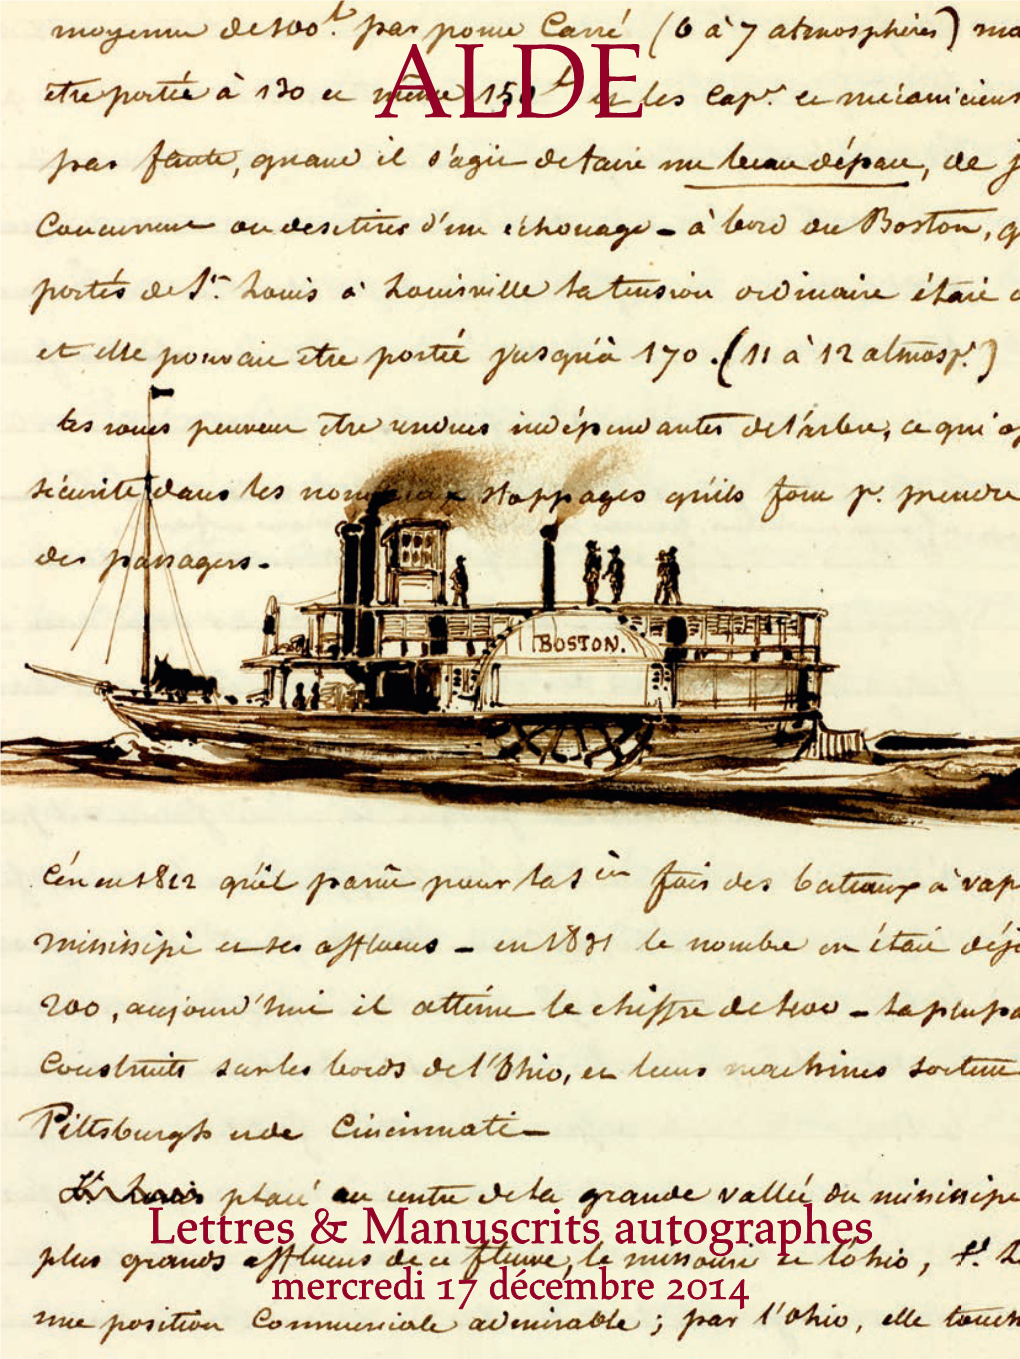 moyenne de 100.t par pouce Carré (6 à 7 atmosphères) ma
ALDE
être portée à 130 et même 150 t et les Cap.s et mécaniciens
pas faute, quand il s'agit de faire un beau départ, de j
Concurrent ou de se tirer d'un échouage - à bord du Boston, q
portés de St. Louis à Louisville la tension ordinaire était d
et elle pouvait être portée jusqu'à 170. (11 à 12 atmosp.s)
les roues peuvent être rendues indépendantes de l'arbre, ce qui
sécurité dans les nombreux stoppages qu'ils font pr. prendre
des passagers.
BOSTON.
C'est en 1812 qu'il parut pour la 1ère fois des bateaux à vap
mississipi et ses affluents - en 1831 le nombre en était déj
200, aujourd'hui il atteint le chiffre de - la plupa
Construits sur les bords de l'Ohio, et leurs machines sortent
Pittsburgh et de Cincinnati -
St. Louis placé au centre de la grande vallée du mississipi
Lettres & Manuscrits autographes
plus grands affluents de ce fleuve, le missouri et l'ohio, St. L
mercredi 17 décembre 2014
une position Commerciale admirable ; par l'Ohio, elle touch